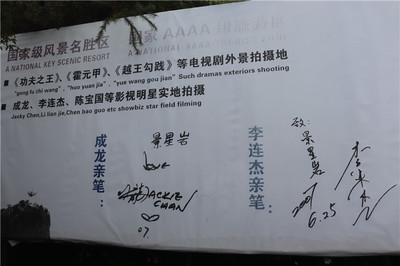 国家级风景名胜区
国家AAAA
A NATIONAL KEY SCENIC RESORT
■《功夫之王》、《霍元甲》、《越王勾践》等电视剧外景拍摄地
"gong fu zhi wang"、"huo yuan jia"、"yue wang gou jian" Such dramas exteriors shooting
■成龙、李连杰、陈宝国等影视明星实地拍摄
Jacky Chen,Li lian jie,Chen bao guo etc showbiz star field filming
成龙亲笔：
景星岩
love
成龙 JACKIE
CHAN
07.
李连杰亲笔：
致：景星岩
李连杰
2007
6.25